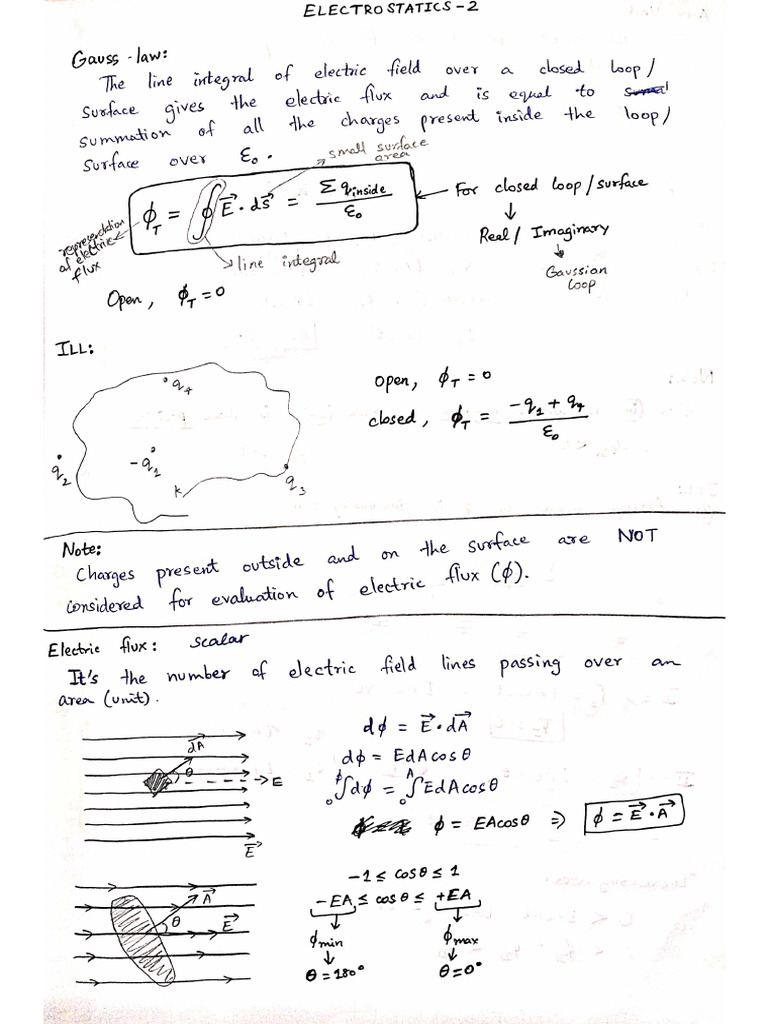 ELECTROSTATICS-2
Gauss-law:
The line integral of electric field over a closed loop/
Surface gives the electric flux and is equal to
summation of all the charges present inside the loop/
Surface over ε₀.
small surface
area
ϕ_T = ∮ E⃗ · ds⃗ = Σ q_inside / ε₀
For closed loop/surface
↓
Real/ Imaginary
↓
Gaussian
loop
representation
of electric
flux
line integral
Open, ϕ_T = 0
ILL:
q₄
q₂
-q₁
k
q₃
open, ϕ_T = 0
closed, ϕ_T = (-q₁ + q₄) / ε₀
Note:
Charges present outside and on the surface are NOT
considered for evaluation of electric flux (ϕ).
Electric flux: scalar
It's the number of electric field lines passing over an
area (unit).
dA⃗
θ
E
E⃗
dϕ = E⃗ · dA⃗
dϕ = EdA cosθ
₀∫^ϕ dϕ = ₀∫^A EdA cosθ
ϕ = EA cosθ ⇒ ϕ = E⃗ · A⃗
A⃗
θ
E⃗
-1 ≤ cosθ ≤ 1
-EA ≤ cosθ ≤ +EA
↓ ↓
ϕmin ϕmax
↓ ↓
θ = 180° θ = 0°